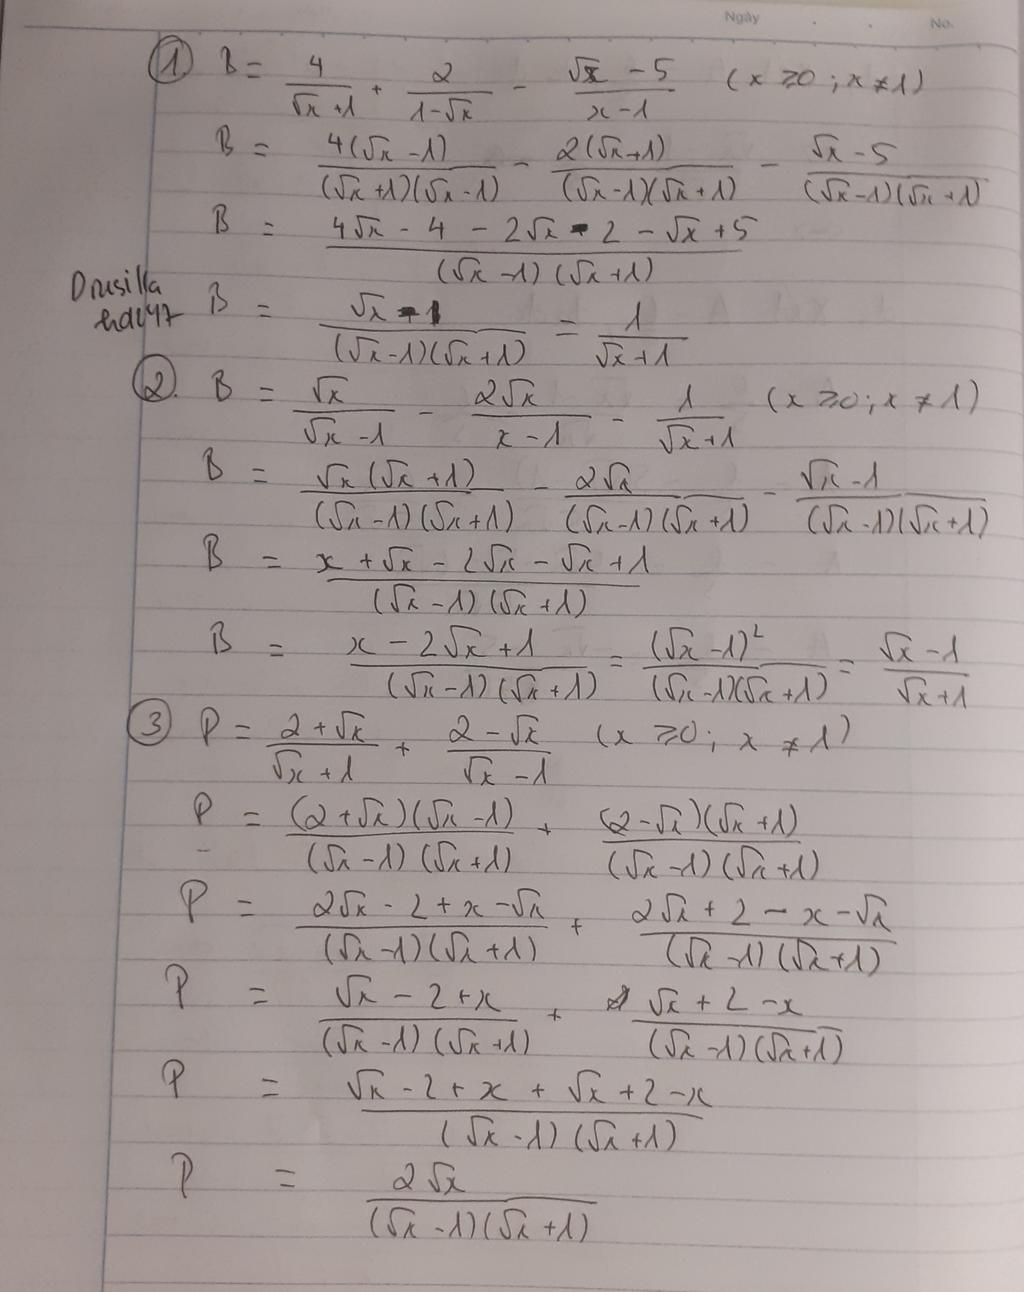 Ngày . . No.
① B = 4/(√x + 1) + 2/(1-√x) - (√x - 5)/(x - 1) (x ≥ 0 ; x ≠ 1)
B = 4(√x - 1)/((√x + 1)(√x - 1)) - 2(√x + 1)/((√x - 1)(√x + 1)) - (√x - 5)/((√x - 1)(√x + 1))
B = (4√x - 4 - 2√x - 2 - √x + 5)/((√x - 1)(√x + 1))
Drusilla
hdcy47
B = (√x - 1)/((√x - 1)(√x + 1)) = 1/(√x + 1)
②. B = √x/(√x - 1) - 2√x/(x - 1) - 1/(√x + 1) (x ≥ 0 ; x ≠ 1)
B = √x(√x + 1)/((√x - 1)(√x + 1)) - 2√x/((√x - 1)(√x + 1)) - (√x - 1)/((√x - 1)(√x + 1))
B = (x + √x - 2√x - √x + 1)/((√x - 1)(√x + 1))
B = (x - 2√x + 1)/((√x - 1)(√x + 1)) = (√x - 1)²/((√x - 1)(√x + 1)) = (√x - 1)/(√x + 1)
③ P = (2 + √x)/(√x + 1) + (2 - √x)/(√x - 1) (x ≥ 0 ; x ≠ 1)
P = (2 + √x)(√x - 1)/((√x - 1)(√x + 1)) + (2 - √x)(√x + 1)/((√x - 1)(√x + 1))
P = (2√x - 2 + x - √x)/((√x - 1)(√x + 1)) + (2√x + 2 - x - √x)/((√x - 1)(√x + 1))
P = (√x - 2 + x)/((√x - 1)(√x + 1)) + (√x + 2 - x)/((√x - 1)(√x + 1))
P = (√x - 2 + x + √x + 2 - x)/((√x - 1)(√x + 1))
P = 2√x/((√x - 1)(√x + 1))